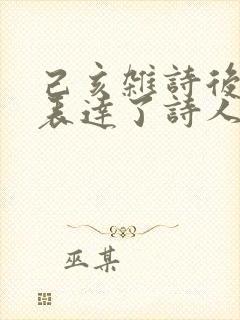 己亥雜詩後
表達了詩人
巫某